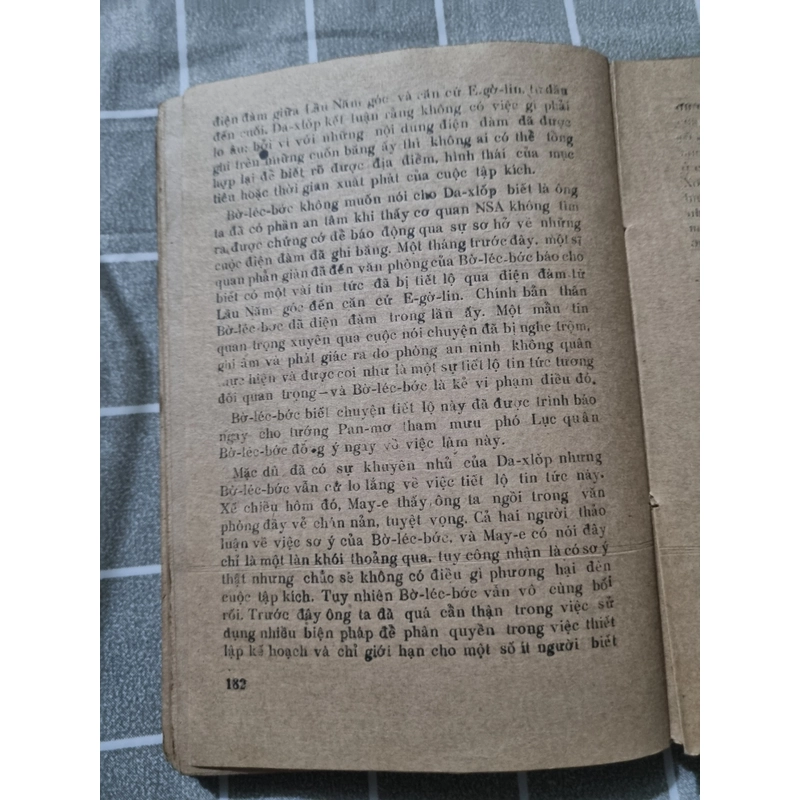 điện đàm giữa Lầu Năm góc và căn cứ E-gờ-lin, từ đầu
đến cuối. Da-xlốp kết luận rằng không có việc gì phải
lo âu; bởi vì với những nội dung điện đàm đã được
ghi trên những cuốn băng ấy thì không ai có thể tổng
hợp lại để biết rõ được địa điểm, hình thái của mục
tiêu hoặc thời gian xuất phát của cuộc tập kích.
Bờ-léc-bớc không muốn nói cho Da-xlốp biết là ông
ta đã có phần an tâm khi thấy cơ quan NSA không tìm
ra được chứng cớ để báo động qua sự sơ hở về những
cuộc điện đàm đã ghi băng. Một tháng trước đây, một sĩ
quan phản gián đã đến văn phòng của Bờ-léc-bớc báo cho
biết có một vài tin tức đã bị tiết lộ qua điện đàm từ
Lầu Năm góc đến căn cứ E-gờ-lin. Chính bản thân
Bờ-léc-bớc đã điện đàm trong lần ấy. Một mẩn tin
quan trọng xuyên qua cuộc nói chuyện đã bị nghe trộm,
ghi âm và phát giác ra do phòng an ninh không quân
thực hiện và được coi như là một sự tiết lộ tin tức tương
đối quan trọng—và Bờ-léc-bớc là kẻ vi phạm điều đó.
Bờ-léc-bớc biết chuyện tiết lộ này đã được trình báo
ngay cho tướng Pan-mơ tham mưu phó Lục quân
Bờ-léc-bớc đồng ý ngay về việc làm này.
Mặc dù đã có sự khuyên nhủ của Da-xlốp nhưng
Bờ-léc-bớc vẫn cứ lo lắng về việc tiết lộ tin tức này.
Xế chiều hôm đó, May-e thấy ông ta ngồi trong văn
phòng đầy vẻ chán nản, tuyệt vọng. Cả hai người thảo
luận về việc sơ ý của Bờ-léc-bớc, và May-e có nói đây
chỉ là một làn khói thoảng qua, tuy công nhận là có sơ ý
thật nhưng chắc sẽ không có điều gì phương hại đến
cuộc tập kích. Tuy nhiên Bờ-léc-bớc vẫn vô cùng bối
rối. Trước đây ông ta đã quá cẩn thận trong việc sử
dụng nhiều biện pháp để phân quyền trong việc thiết
lập kế hoạch và chỉ giới hạn cho một số ít người biết
182